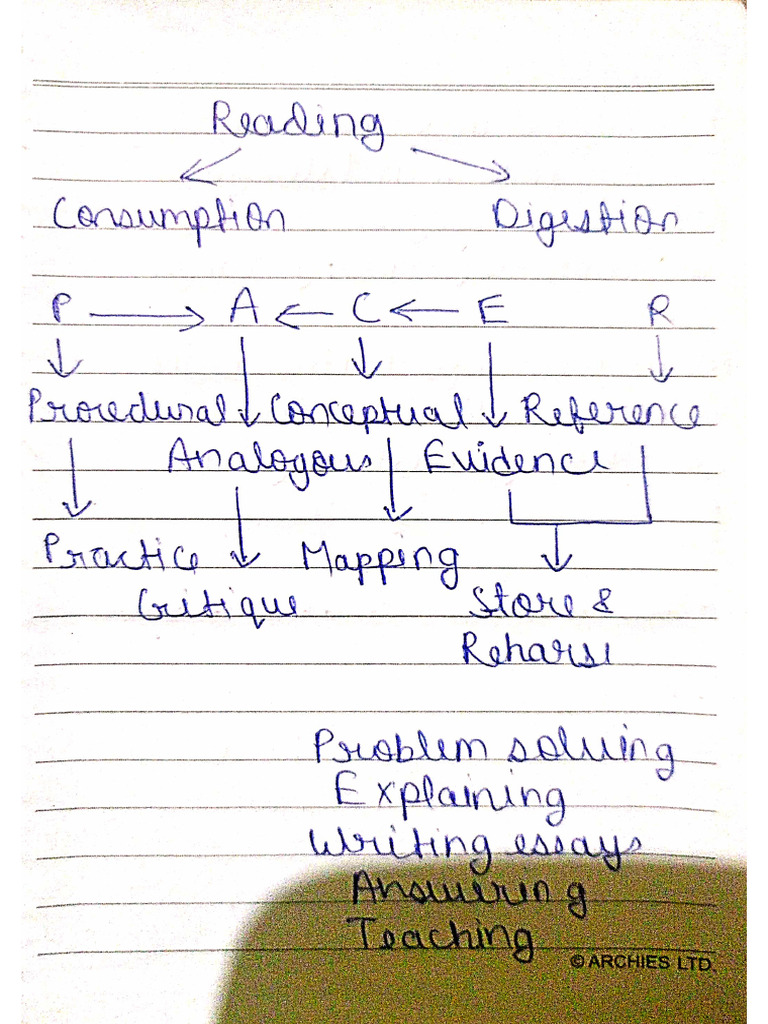 Reading
Consumption Digestion
P → A ← C ← E R
Procedural Conceptual Reference
Analogous Evidence
Practice Mapping
Critique Store &
Reharse
Problem solving
Explaining
Writing essays
Answering
Teaching
© ARCHIES LTD.